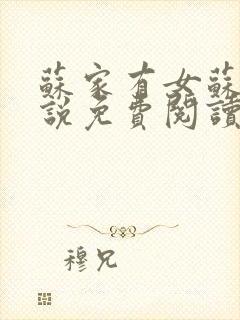 蘇家有女蘇
說免費閱讀
穆兄